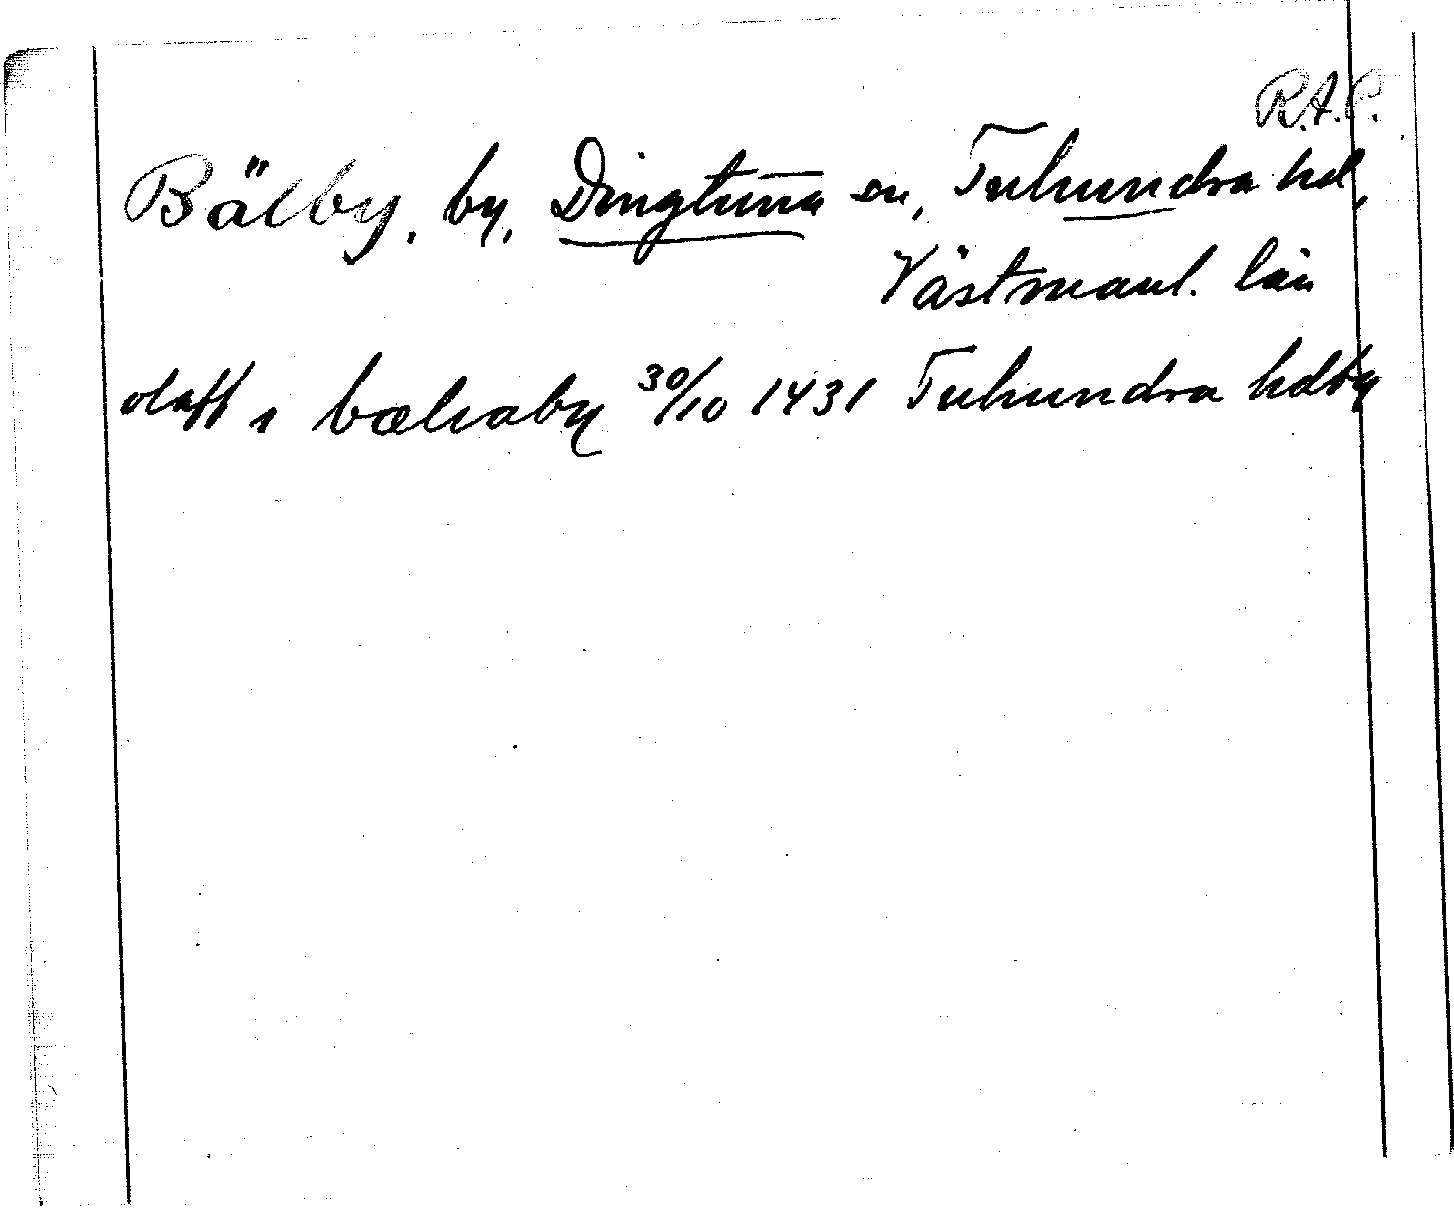 R.A.P.
Bälby, by, Dingtuna sn, Tuhundra hd,
Västmanl. län
olaff i bælraby 30/10 1431 Tuhundra hdby